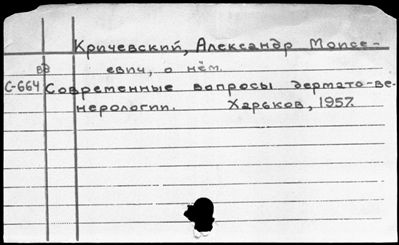 Кричевский, Александр Моисе-
вв
евич, о нём.
С-664 Современные вопросы дермато-ве-
нерологии. Харьков, 1957.